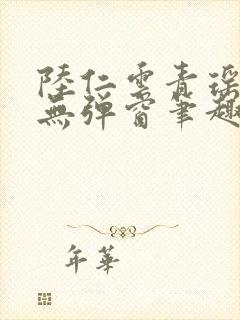 陸仁雲青瑶
無彈窗筆趣
年華